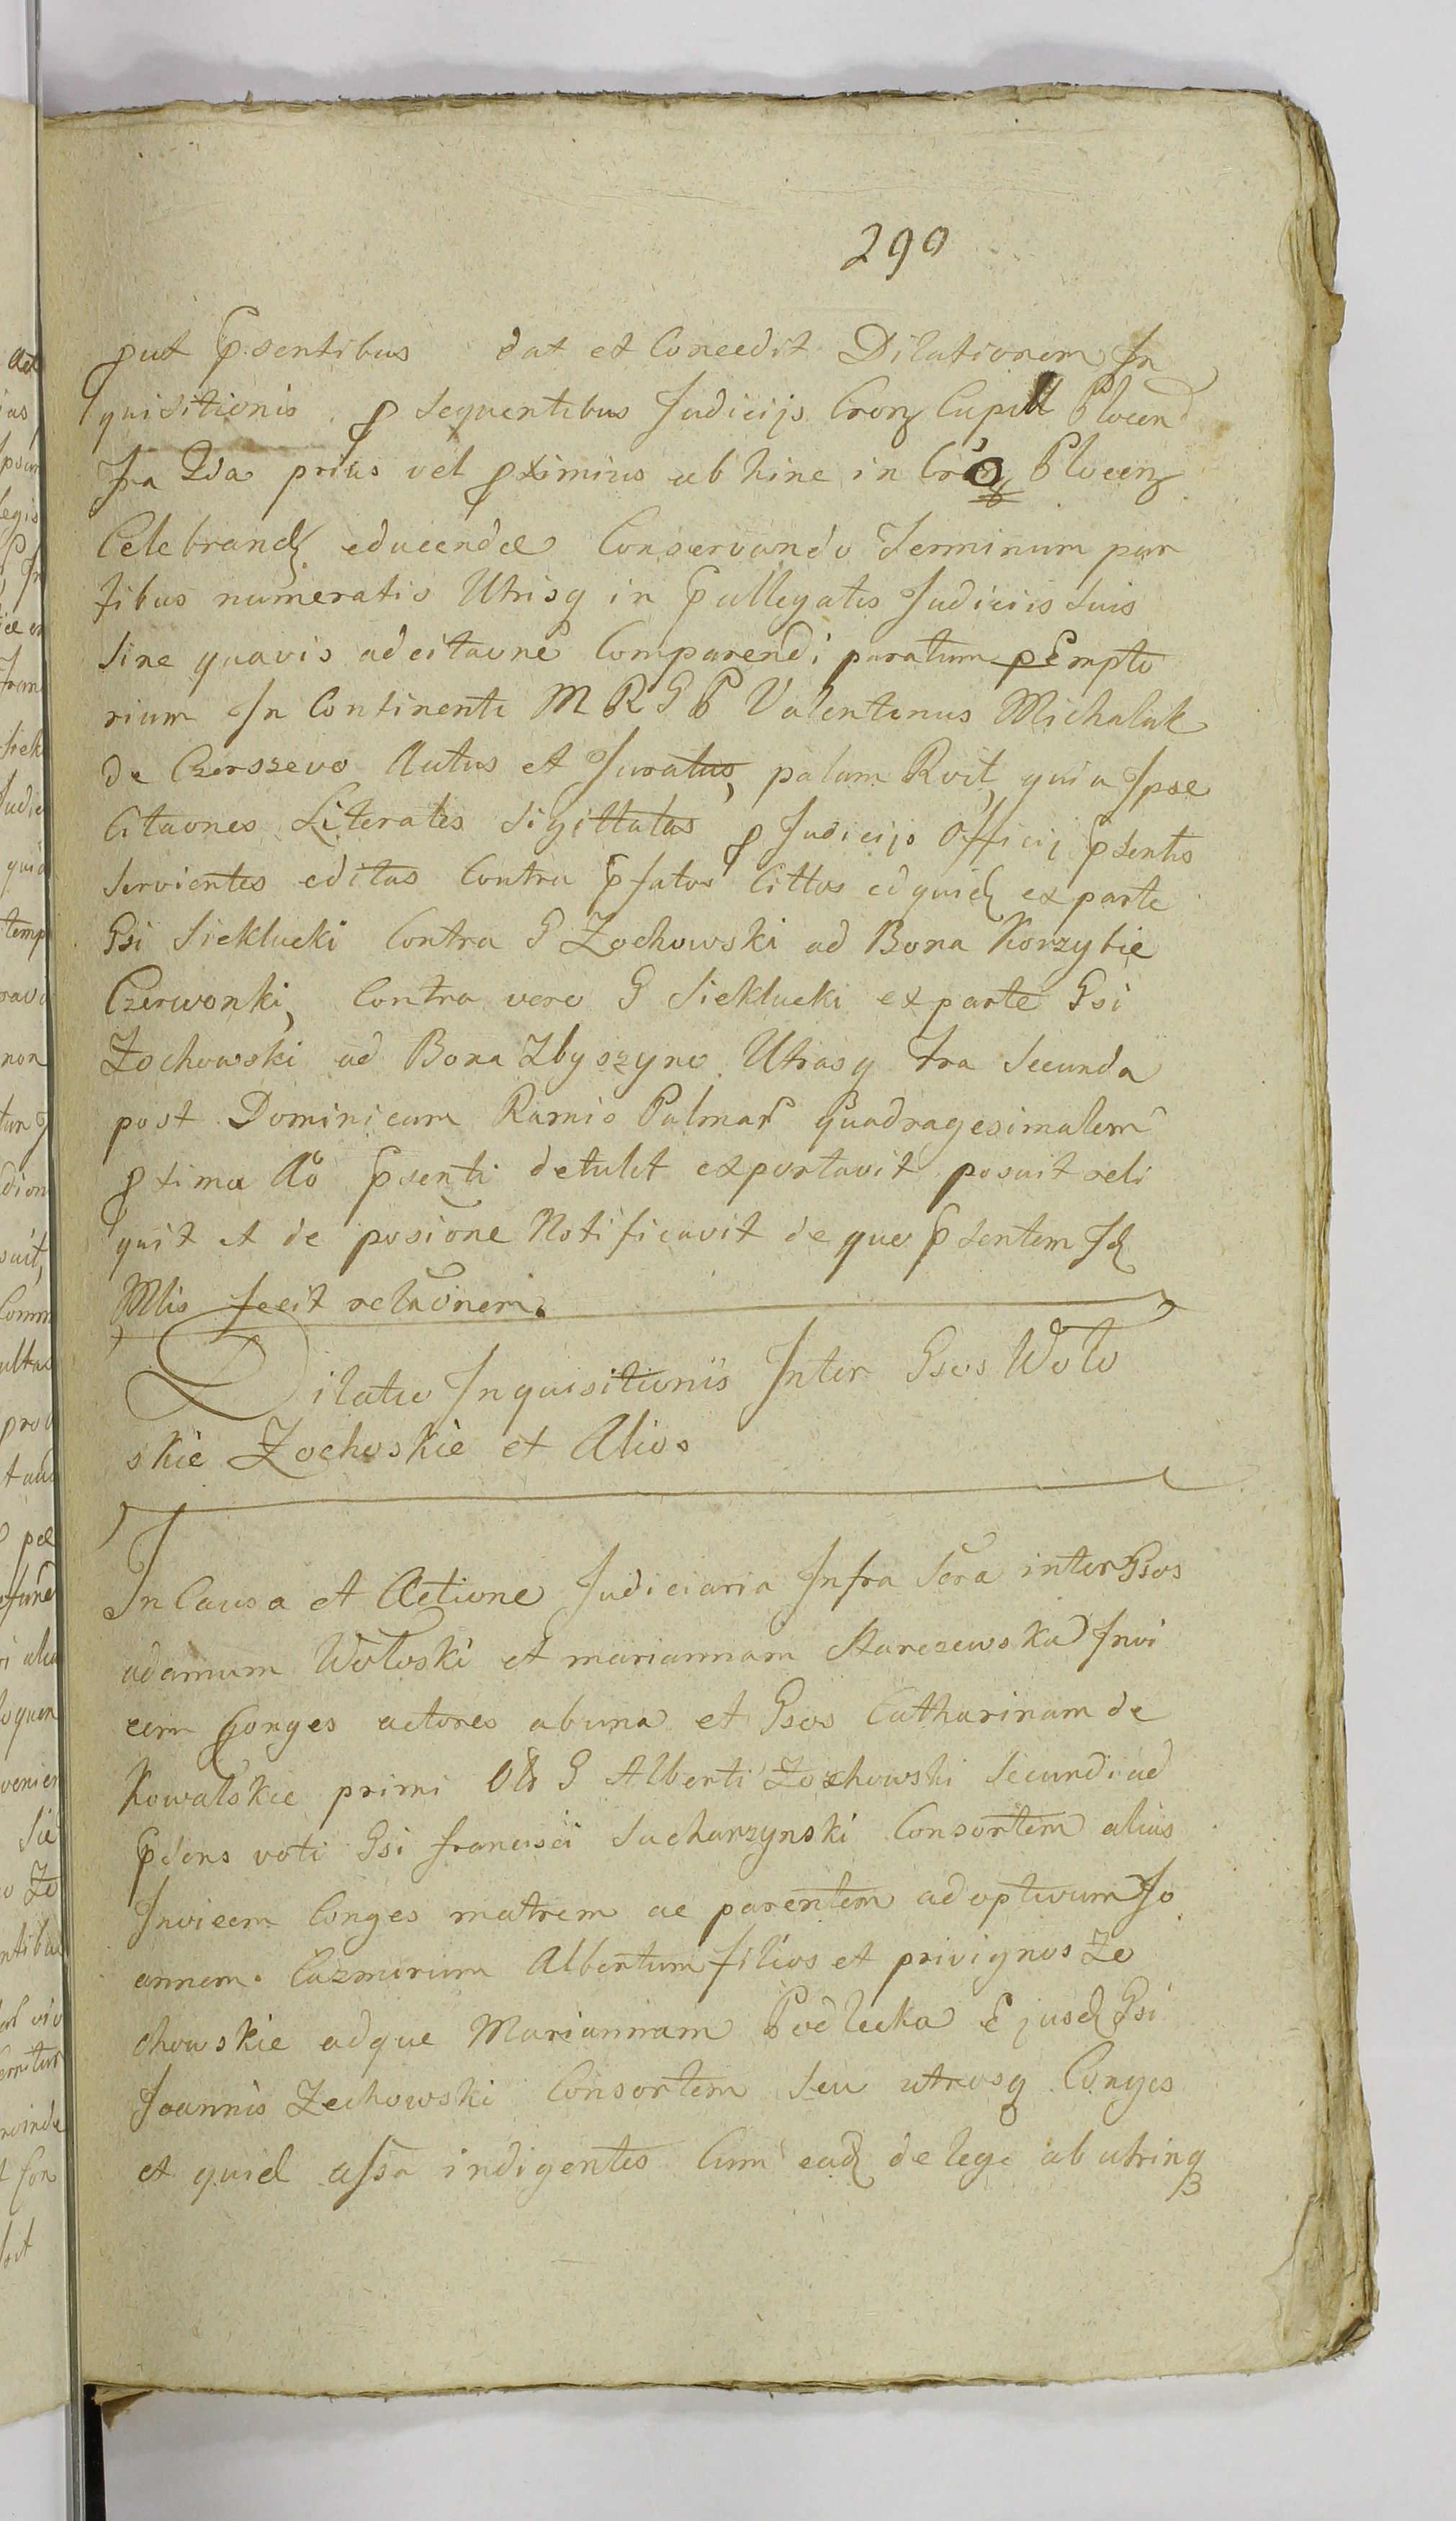 290
put Psentibus dat et Concedit Dilationem In
quisitionis p sequentibus Judicijs Cronz Capitt Plocen
Fra 2da prius vel pximius ab hinc in Cronz Plocenz
Celebrand educendæ Conservando Terminum par
tibus numeratis Utrisq in Pallegatis Judiciis suis
sine quavis adcitaone Comparendi paratum pEmpto
rium In Continenti M R G P Valentinus Michalak
de Czerszevo Autus et Juratus, palam Rvit, quia Ipse
Citaones Literales Sigittatas p Judicijs Officij Psentis
servientes editas Contra Pfatos Cittos edquid ex parte
Gsi Sieklucki Contra G Zochowski ad Bona Korzybie
Czerwonki, Contra vero G Sieklucki ex parte Gsi
Zochowski ad Bona Zbyszyno Utrasq Fra Secunda
post Dominicam Ramis Palmar quadragesimalem
pxima Ao Psenti detulit exportavit posuit reli
quit et de posione Notificavit de quo Psentem Id
Mlis fecit relaonem.
Dilatio Inquisitionis Inter Gsos Woło
skie Zochoskie et Alios
In Causa et Actione Judiciaria Infra Scra inter Gsos
adamum Wołoski et mariannam Starczewska Invi
cem Conges actores abuna et Gsos Catharinam de
Kowalskie primi Olr G Alberti Zochowski Secundi ad
Psens voti Gsi francisci Sucharzynski Consortem alias
Invicem Conges matrem ac parentem adoptivum Jo
annem Cazmirum Albertum filios et privignos Zo
chowskie adque Mariannam Podlecka Ejusd Gsi
Joannis Zochowski Consortem seu utrosq Conges
et quid assa indigentes Cum ead de lege ab utrinq